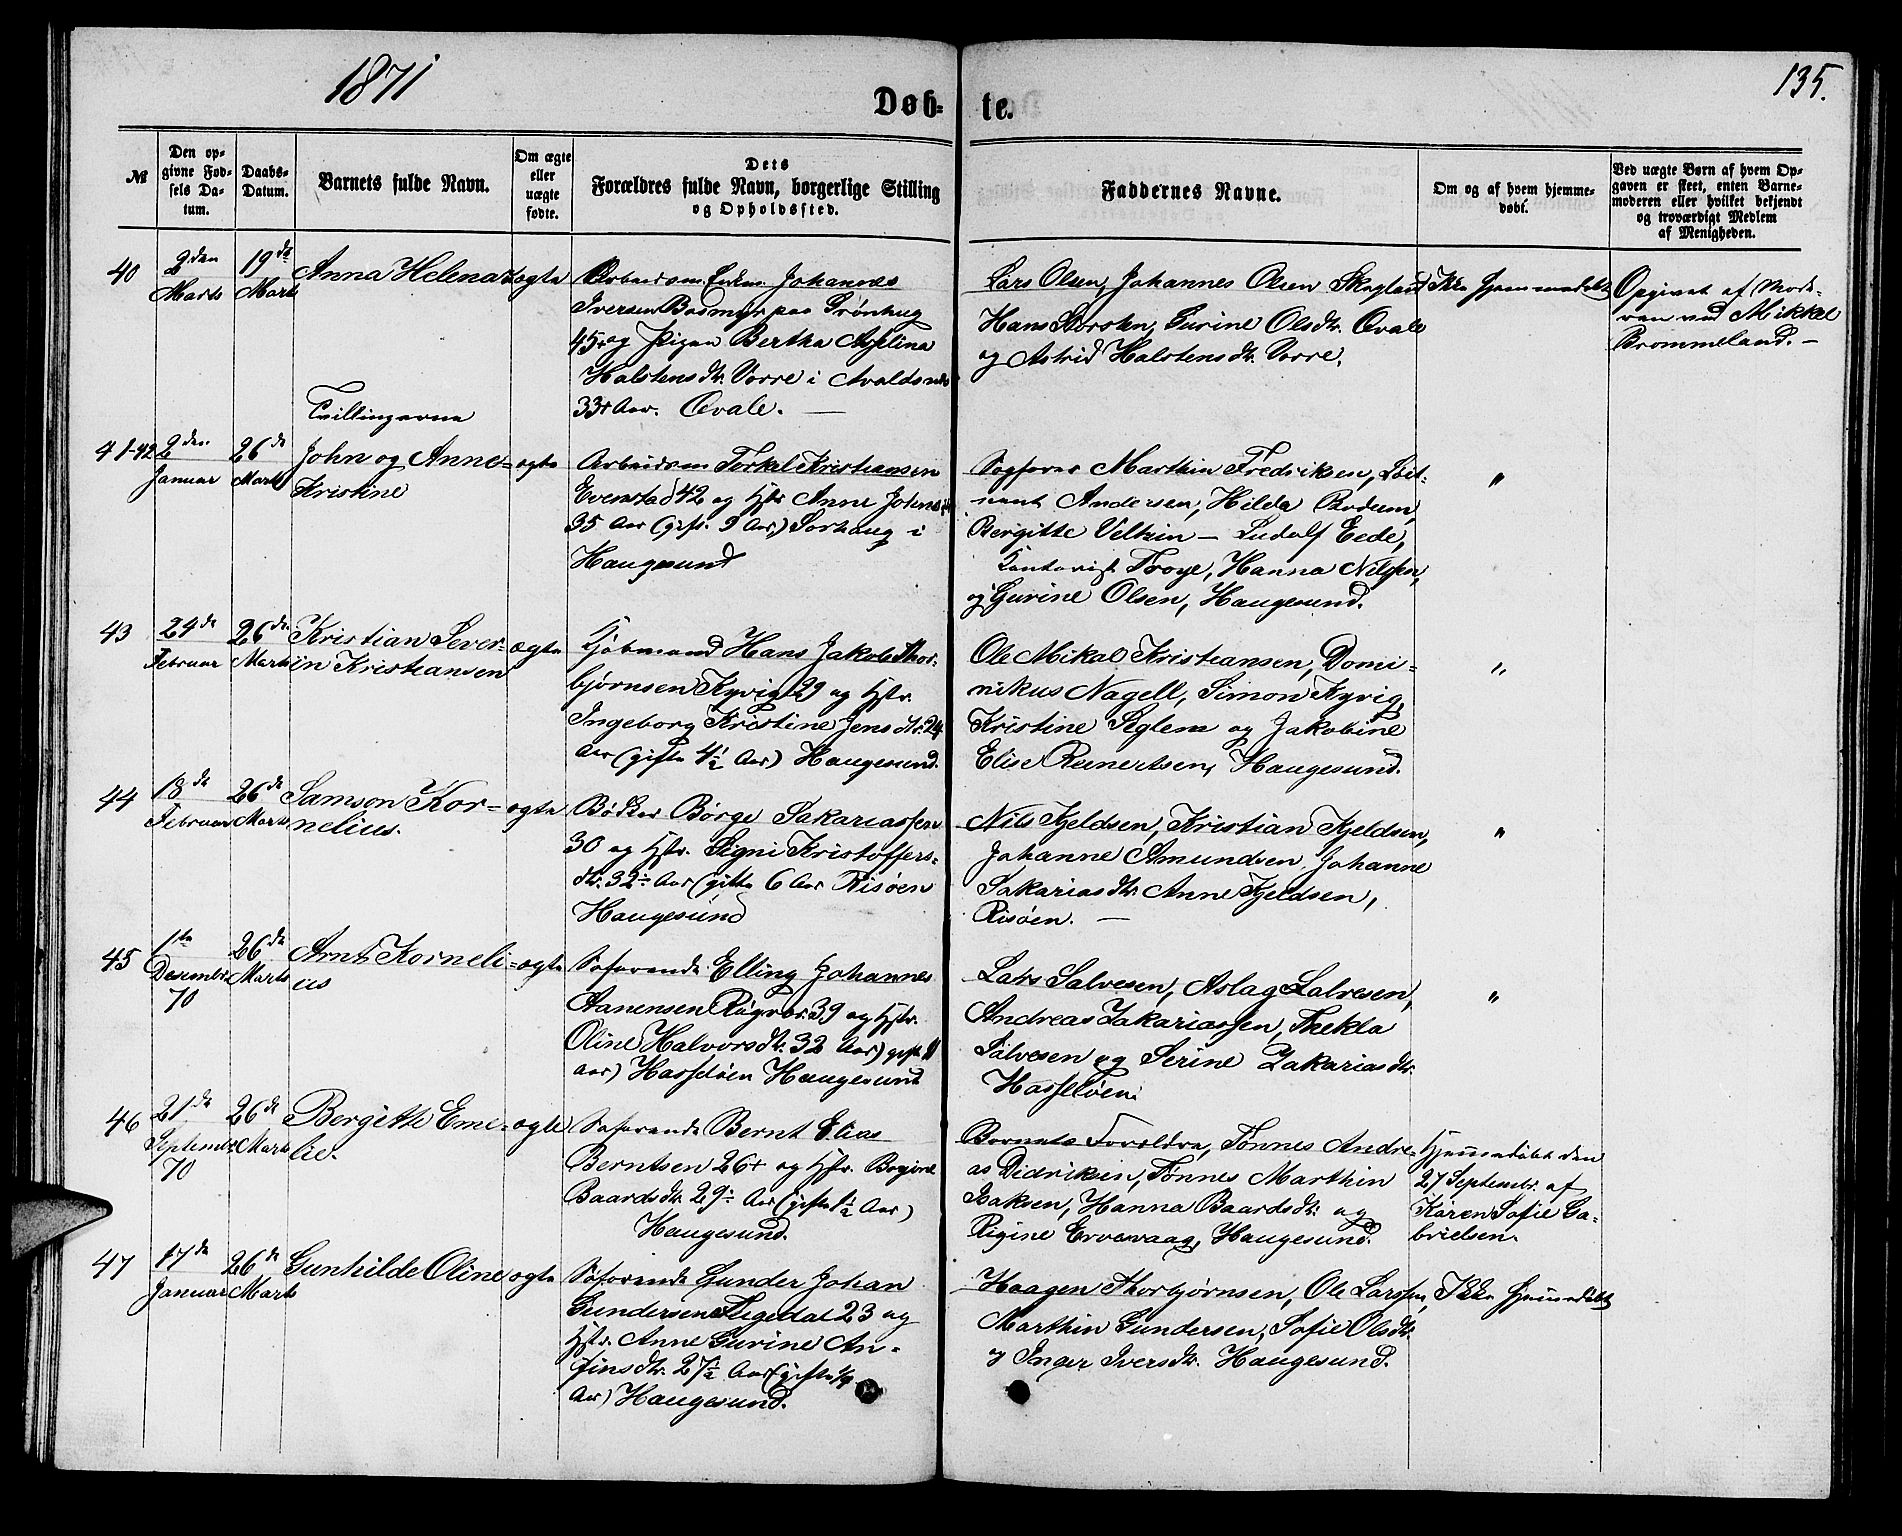 1871
135.
Døb-
te.
№
Den op-
givne Fød-
sels Da-
tum.
Daabs-
Datum.
Barnets fulde Navn.
Om ægte
eller
uægte
fødte.
Dets
Forældres fulde Navn, borgerlige Stilling
og Opholdssted.
Faddernes Navne.
Om og af hvem hjemme-
døbt.
Ved uægte Børn af hvem Op-
gaven er skeet, enten Barne-
moderen eller hvilket bekjendt
og troværdigt Medlem
af Menigheden.
40
2den
Marts
19de
Marts
Anna Helena
uægte
Arbeidsm. Enkem. Johannes
Iversen Bosmyr paa
45 og Pigen Bertha Axelina
Halstensdtr. Vorre i Avaldsnes
33+ Aar. Qvale. —
Lars Olsen, Johannes Olsen Skogland
Hans Storsten, Gurine Olsdtr. Qvale
og Astrid Halstensdtr. Vorre.
Ikke hjemmedøbt
Opgivet af Mode-
ren ved Mikkel
Brommeland. —
Tvillingerne
41-42
2den
Januar
26de
Marts
John og Anne
Kristine
ægte
Arbeidsm Torkel Kristiansen
Evenstad 42 og Hstr. Anne
35 Aar (gift. 9 Aar) Sørhaug i
Haugesund
Sagfører Marthin Fredriksen, Løit-
nant Andersen, Hilda Bodum,
Bergitte Velkin — Ludolf Eede,
Kontorist Froye, Hanna Nilssen,
og Gurine Olsen, Haugesund.
"
43
24de
Februar
26de
Marts
Kristian Sever-
in Kristiansen
ægte
Kjøbmand Hans Jakob Thor-
bjørnsen Kyvig 29 og Hstr.
Ingeborg Kristine Jensdtr. 24
Aar (gifte 4½ Aar) Haugesund.
Ole Mikal Kristiansen, Domi-
nikus Nagell, Simon Kyvig,
Kristine Seglem og Jakobine
Elise Reinertsen, Haugesund.
"
44
18de
Februar
26de
Marts
Samson Kor-
nelius.
ægte
Bødker Børge Sakariassen
30 og Hstr. Signi Kristoffers-
dtr. 32÷ Aar (gifte 6 Aar Risøen
Haugesund
Nils Kjeldsen, Kristian Kjeldsen,
Johanne Amundsen, Johanne
Sakariasdtr. Anne Kjeldsen,
Risøen. —
"
45
1ste
Desembr.
70
26de
Marts
Arnt Korneli-
us
ægte
Søfarende Elling Johannes
Aanensen Røgvær 39 og Hstr.
Oline Halvorsdtr. 32 Aar) gifte 11
Aar) Hasseløen Haugesund
Lars Salvesen, Aslag Salvesen,
Andreas Zakariassen, Thekla
Salvesen og Serine Zakariasdtr.
Hasseløen.
"
46
21de
Septembr.
70
26de
Marts
Bergitte Eme-
lie.
ægte
Søfarende Bernt Elias
Berntsen 26+ og Hstr. Regine
Baardsdtr. 29÷ Aar (gifte 1½ Aar)
Haugesund.
Barnets Forældre, Tønnes Andre-
as Didriksen, Tønnes Marthin
Isaksen, Hanna Baardsdtr. og
Rigine Ervesvaag, Haugesund.
Hjemmedøbt den
27 Septembr. af
Karen Sofie Ga-
brielsen.
47
17de
Januar
26de
Marts
Gunhilde Oline
ægte
Søfarende Gunder Johan
Gundersen Legedal 23 og
Hstr. Anne Gurine An-
finsdtr. 27½ Aar (gifte
Aar) Haugesund.
Haagen Thorbjørnsen, Ole Larsen,
Marthin Gundersen, Sofie Olsdtr.
og Inger Iversdtr. Haugesund.
Ikke hjemmedøbt